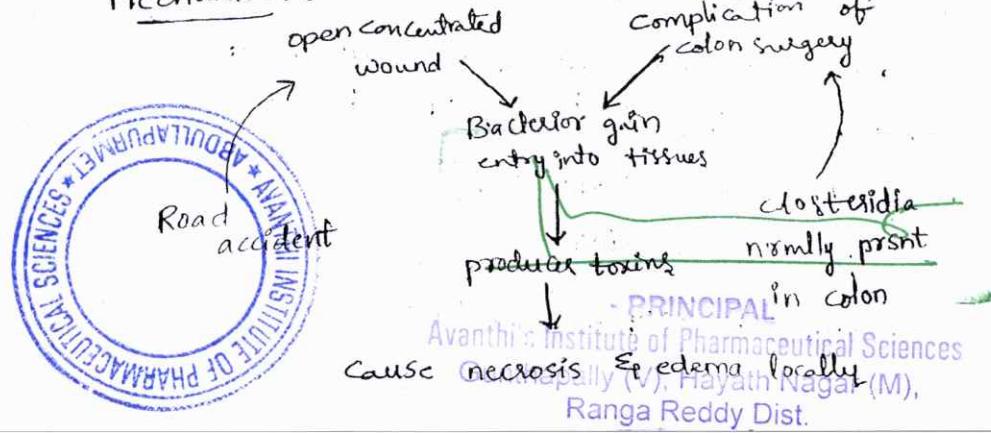 Mechanism
open concentrated
wound
complication of
colon surgery
Bacterior gain
entry into tissues
Road
accident
closteridia
nrmlly prsnt
in colon
produces toxins
cause necrosis & edema locally
AVANTHI INSTITUTE OF PHARMACEUTICAL SCIENCES ★ ABDULLAPURMET ★
PRINCIPAL
Avanthi's Institute of Pharmaceutical Sciences
Gunthapally (V), Hayath Nagar (M),
Ranga Reddy Dist.